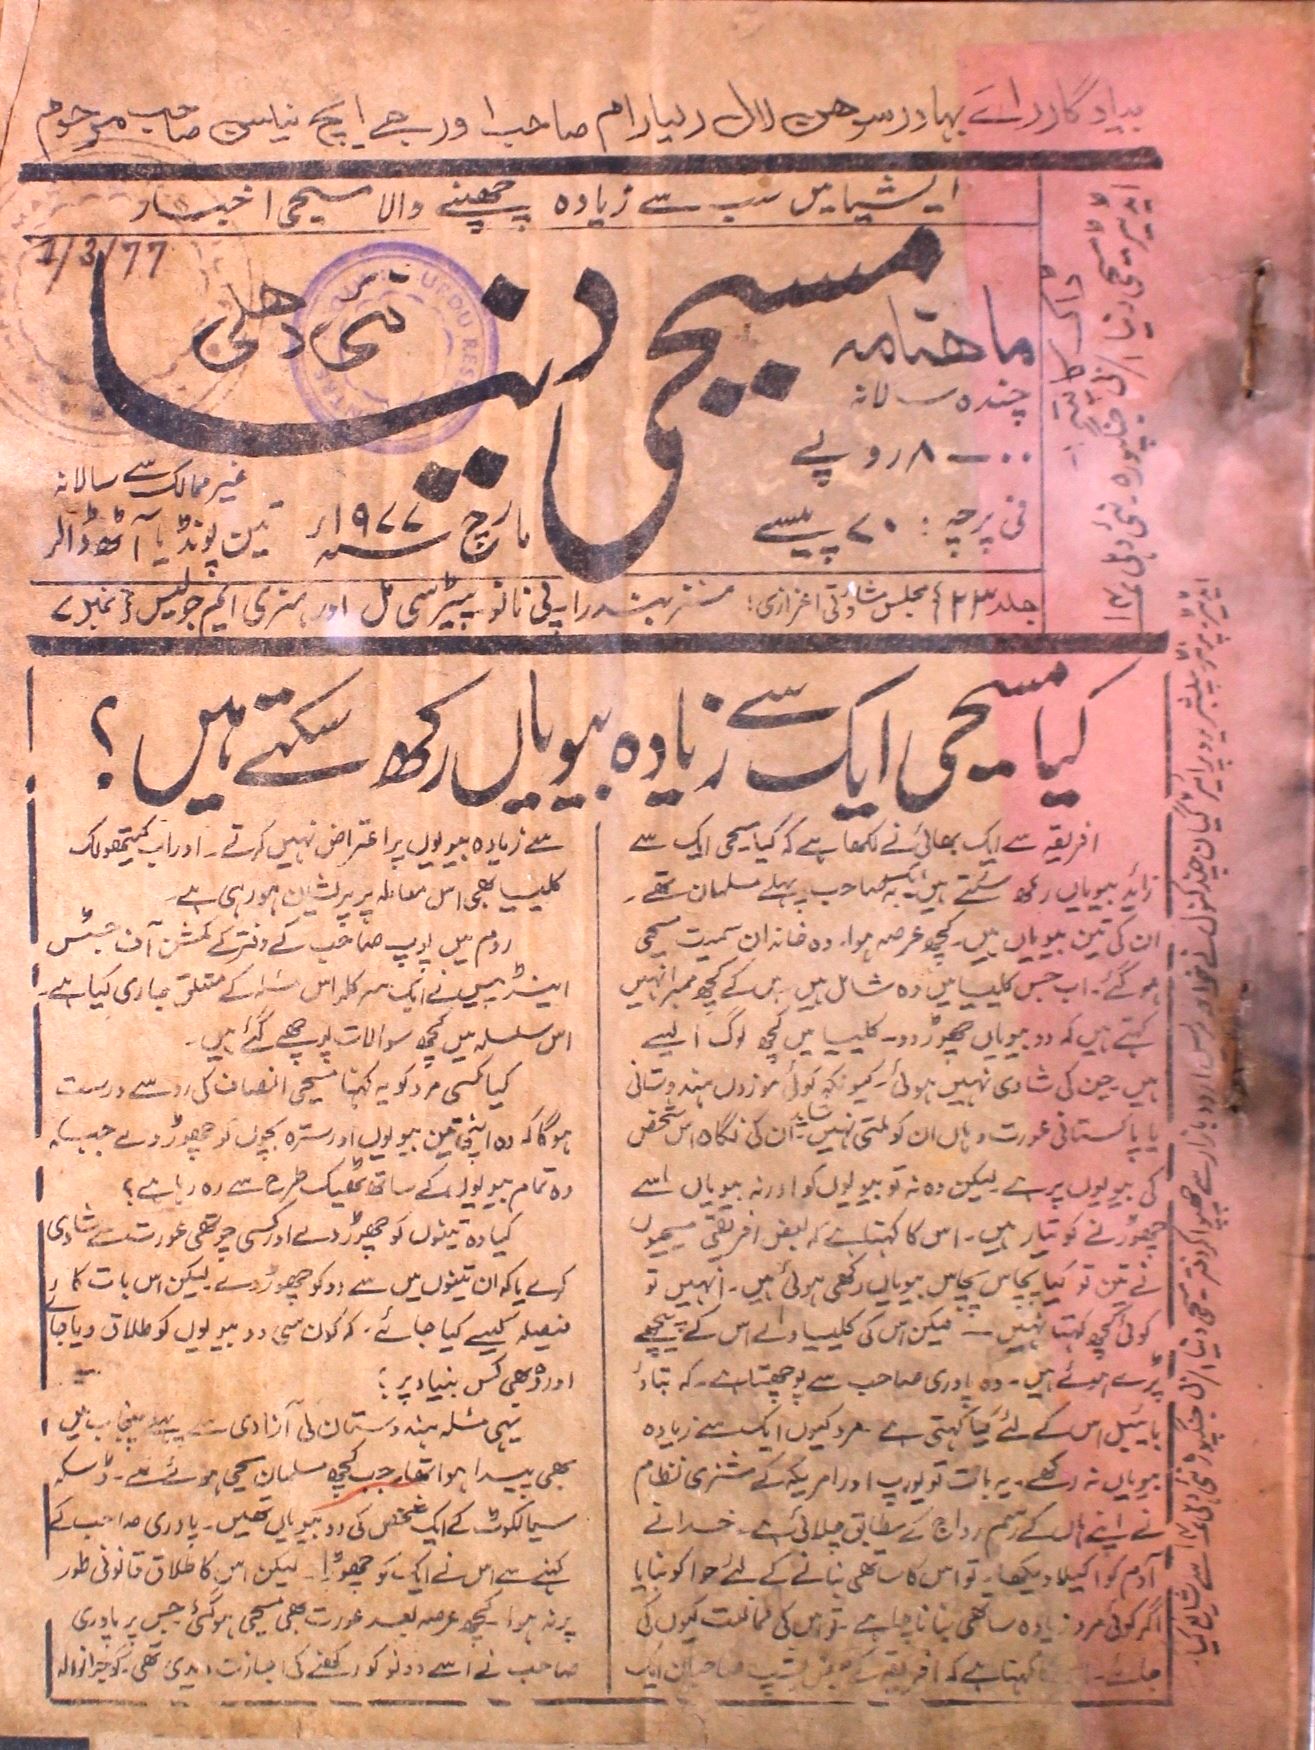 بیادگار رائے بہادر سوھن لال رلیارام صاحب اور جے ایچ نیلسن صاحب مرحوم
ایشیا میں سب سے زیادہ چھپنے والا مسیحی اخبار
1/3/77
مسیحی دنیا
نئی دھلی
ماھنامہ
چندہ سالانہ
۸-۰۰ روپے
فی پرچہ: ۷۰ پیسے
مارچ سنہ ۱۹۷۷ء
غیر ممالک سے سالانہ
تین پونڈ یا آٹھ ڈالر
جلد ۲۳ مجلس مشاورتی اعزازی: مسٹر ہندرا پی نانو۔ پیٹر سی مل اور ہنری ایم جولیس نمبر ۷
کیا مسیحی ایک سے زیادہ بیویاں رکھ سکتے ہیں؟
افریقہ سے ایک بھائی نے لکھا ہے کہ کیا مسیحی ایک سے
زائد بیویاں رکھ سکتے ہیں؟ یہ صاحب پہلے مسلمان تھے۔
ان کی تین بیویاں ہیں۔ کچھ عرصہ ہوا۔ وہ خاندان سمیت مسیحی
ہو گئے۔ اب جس کلیسیا میں وہ شامل ہیں۔ اس کے کچھ ممبر انہیں
کہتے ہیں کہ دو بیویاں چھوڑ دو۔ کلیسیا میں کچھ لوگ ایسے
ہیں۔ جن کی شادی نہیں ہوئی۔ کیونکہ کوئی موزوں ہندوستانی
یا پاکستانی عورت وہاں ان کو ملتی نہیں۔ شاید ان کی نگاہ اس شخص
کی بیویوں پر ہے۔ لیکن وہ نہ تو بیویوں کو اور نہ بیویاں اسے
چھوڑنے کو تیار ہیں۔ اس کا کہنا ہے کہ بعض افریقی مسیحیوں
نے تین تو کیا پچاس پچاس بیویاں رکھی ہوئی ہیں۔ انہیں تو
کوئی کچھ کہتا نہیں۔ لیکن اس کی کلیسیا والے اس کے پیچھے
پڑے ہوئے ہیں۔ وہ پادری صاحب سے پوچھتا ہے۔ کہ بتاؤ
بائیبل اس کے لئے کیا کہتی ہے۔ مرد کیوں ایک سے زیادہ
بیویاں نہ رکھے۔ یہ بات تو یورپ اور امریکہ کے مشنری نظام
نے اپنے ہاں کے رسم رواج کے مطابق چلائی ہے۔ خدا نے
آدم کو اکیلا دیکھا۔ تو اس کا ساتھی بنانے کے لئے حوا کو بنایا
اگر کوئی مرد زیادہ ساتھی بنانا چاہے۔ تو اس کی مخالفت کیوں کی
جائے۔ کہنا ہے کہ افریقہ کے بعض بشپ صاحبان ایک
سے زیادہ بیویوں پر اعتراض نہیں کرتے۔ اور اب کیتھولک
کلیسیا بھی اس معاملہ پر پریشان ہو رہی ہے۔
روم میں پوپ صاحب کے دفتر کے کمشن آف جسٹس
اینڈ پیس نے ایک سرکلر اس مسئلہ کے متعلق جاری کیا ہے۔
اس سلسلہ میں کچھ سوالات پوچھے گئے ہیں۔
کیا کسی مرد کو یہ کہنا مسیحی انصاف کی رو سے درست
ہوگا کہ وہ اپنی تین بیویوں اور سترہ بچوں کو چھوڑ دے جبکہ
وہ تمام بیویوں کے ساتھ ٹھیک طرح سے رہ رہا ہے؟
کیا وہ تینوں کو چھوڑ دے اور کسی چوتھی عورت سے شادی
کرے یا کہ ان تینوں میں سے دو کو چھوڑ دے۔ لیکن اس بات کا
فیصلہ کیسے کیا جائے۔ کہ کون سی دو بیویوں کو طلاق دیا جائے
اور وہ بھی کس بنیاد پر؟
یہی مسئلہ ہندوستان کی آزادی سے پہلے پنجاب میں
بھی پیدا ہوا تھا۔ جب کچھ مسلمان مسیحی ہوئے تھے۔ ڈسکہ
سیالکوٹ کے ایک شخص کی دو بیویاں تھیں۔ پادری صاحب کے
کہنے سے اس نے ایک کو چھوڑا۔ لیکن اس کا طلاق قانونی طور
پر نہ ہوا۔ کچھ عرصہ بعد عورت بھی مسیحی ہو گئی۔ جس پر پادری
صاحب نے اسے دونو کو رکھنے کی اجازت دیدی تھی۔ گوجرانوالہ